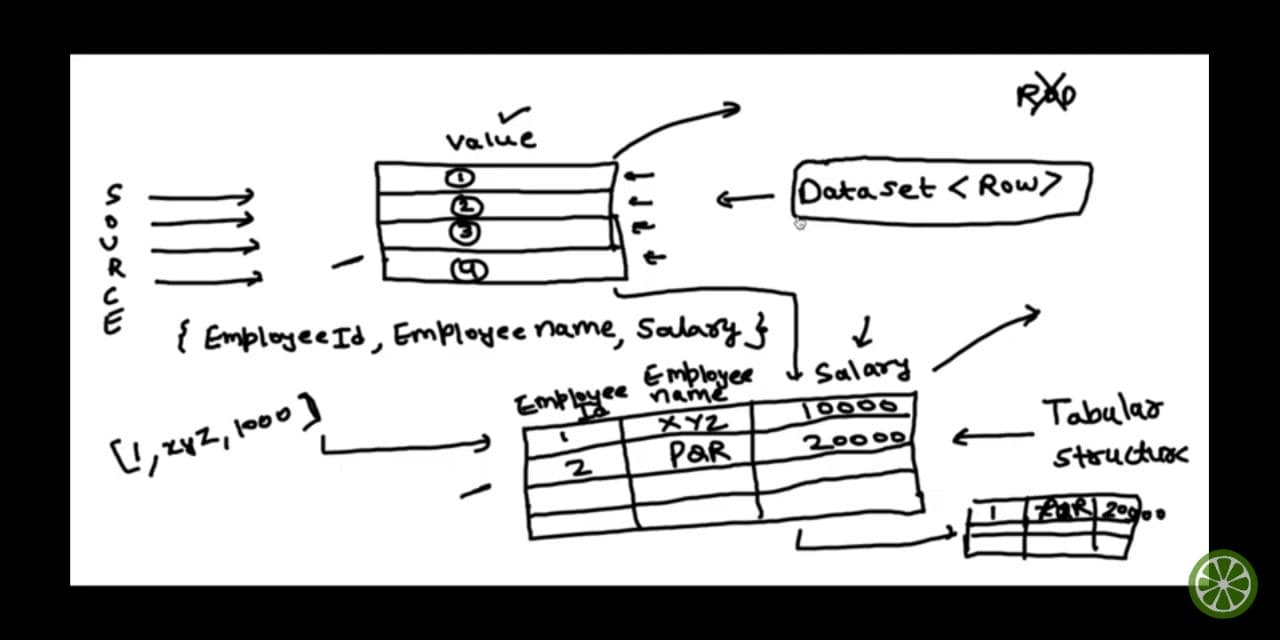 RDD
value
SOURCE
1
2
3
4
Dataset <Row>
{ EmployeeId, Employee name, Salary }
Employee Id
Employee name
Salary
[1, xyz, 1000]
1 XYZ 10000
2 PQR 20000
Tabular
structure
1 PQR 20000